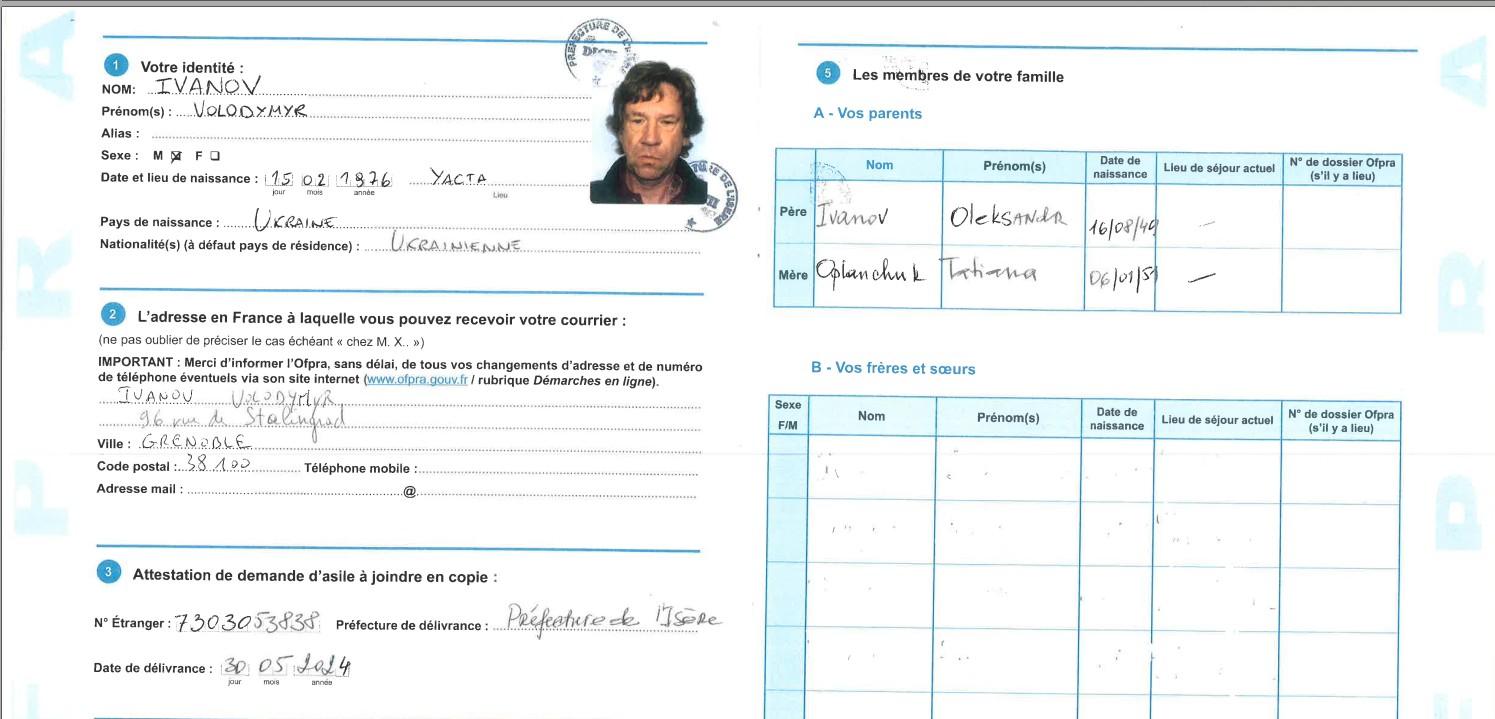 O F P R A
1 Votre identité :
NOM: IVANOV
Prénom(s) : VOLODYMYR
Alias :
Sexe : M ☒ F ☐
Date et lieu de naissance : 15 02 1976 YACTA
jour mois année Lieu
Pays de naissance : UKRAINE
Nationalité(s) (à défaut pays de résidence) : UKRAINIENNE
PRÉFECTURE DE L'ISÈRE
2 L'adresse en France à laquelle vous pouvez recevoir votre courrier :
(ne pas oublier de préciser le cas échéant « chez M. X.. »)
IMPORTANT : Merci d'informer l'Ofpra, sans délai, de tous vos changements d'adresse et de numéro
de téléphone éventuels via son site internet (www.ofpra.gouv.fr / rubrique Démarches en ligne).
IVANOV VOLODYMYR
96 rue de Stalingrad
Ville : GRENOBLE
Code postal : 38 100 Téléphone mobile :
Adresse mail : @
3 Attestation de demande d'asile à joindre en copie :
N° Étranger : 7303053838 Préfecture de délivrance : Préfecture de l'Isère
Date de délivrance : 30 05 2024
jour mois année
5 Les membres de votre famille
A - Vos parents
Nom Prénom(s) Date de naissance Lieu de séjour actuel N° de dossier Ofpra (s'il y a lieu)
Père Ivanov Oleksandr 16/08/49 —
Mère Oplanchuk Tatiana 06/01/51 —
B - Vos frères et sœurs
Sexe F/M Nom Prénom(s) Date de naissance Lieu de séjour actuel N° de dossier Ofpra (s'il y a lieu)